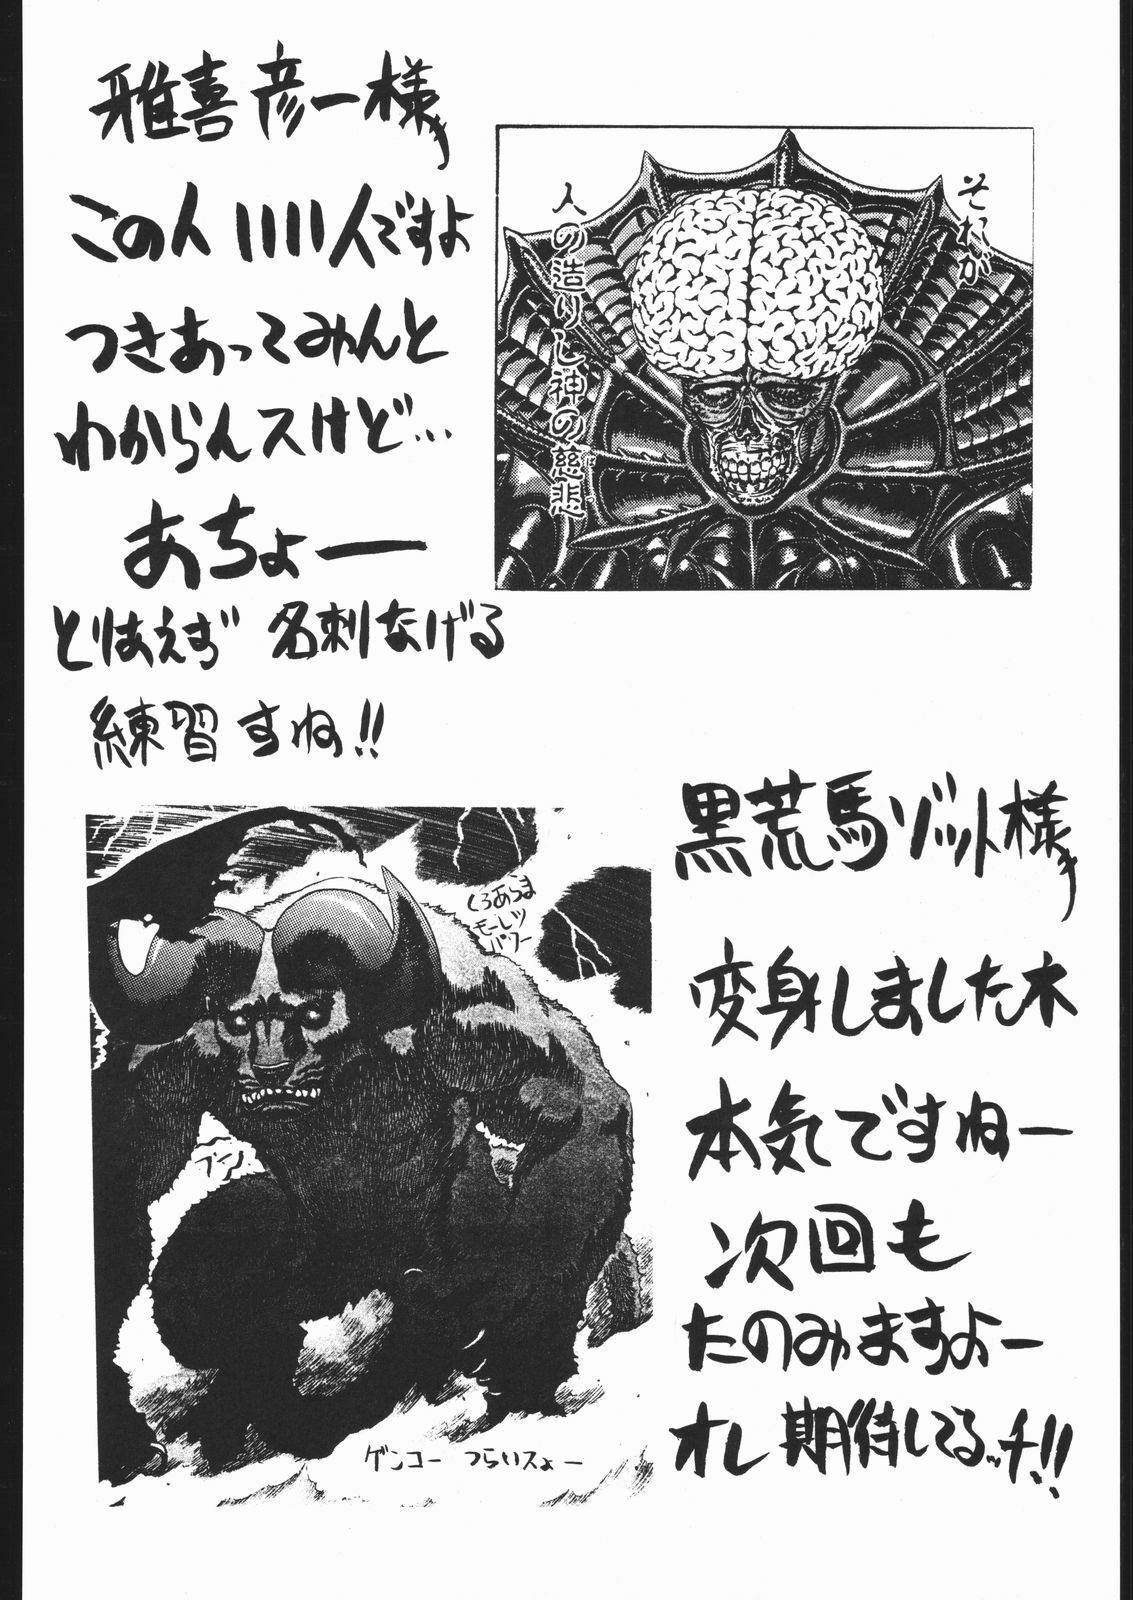 雅喜彦一様
この人いい人ですよ
つきあってみんと
わからんスけど…
あちょー
とりはえず 名刺なげる
練習すね!!
それが
人の造りし神の慈悲
黒荒馬ゾット様
変身しましたネ
本気ですねー
次回も
たのみますよー
オレ期待してるッチ!!
くろあらま
モーレツ
パワー
ゲンコー つらいスよー